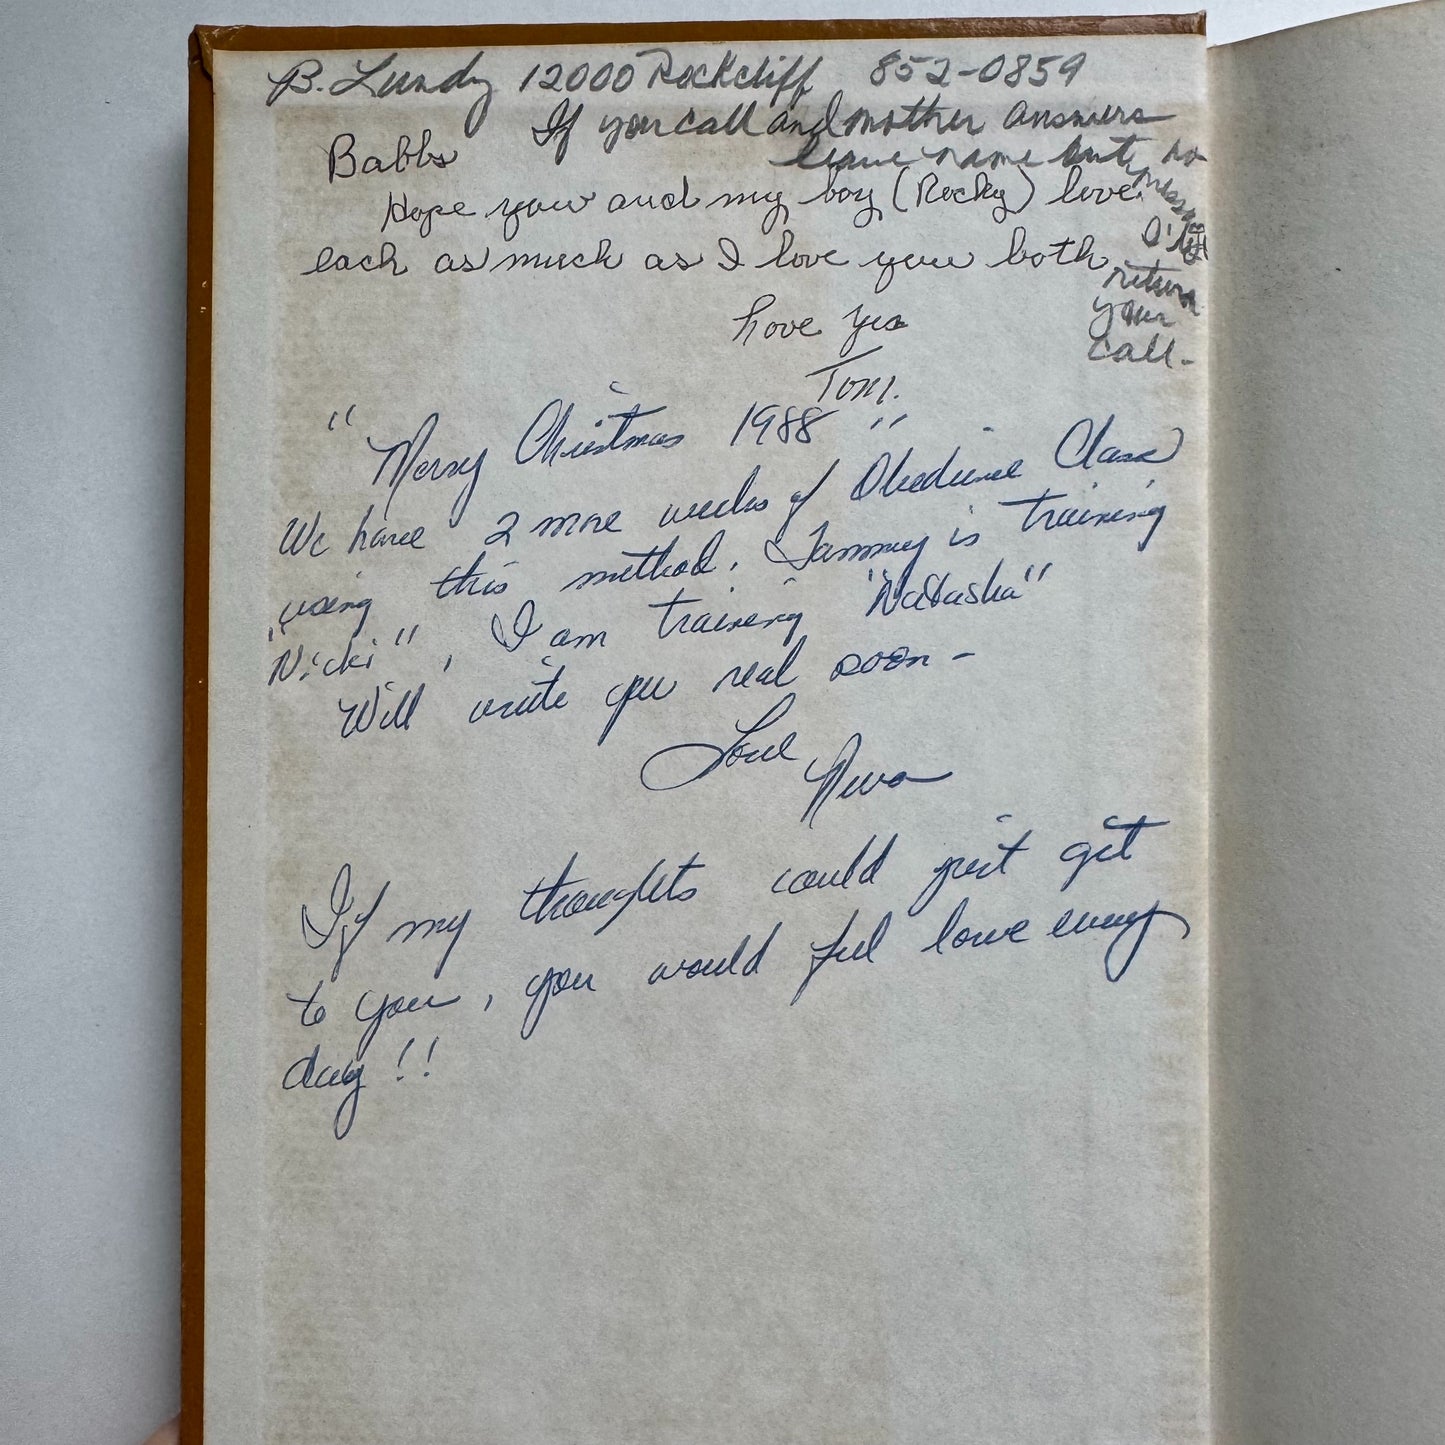 B. Lundy 12000 Rockcliff 852-0859
If you call and mother answers
leave name but no
message
I'll
return
your
call-
Babbs
Hope you and my boy (Rocky) love
each as much as I love you both
Love ya
Tom.
"Merry Christmas 1988"
We have 2 more weeks of Obedience Class
using this method. Tammy is training
"Nicki", I am training "Natasha"
Will write you real soon-
Love
Neva
If my thoughts could just get
to you, you would feel love every
day!!